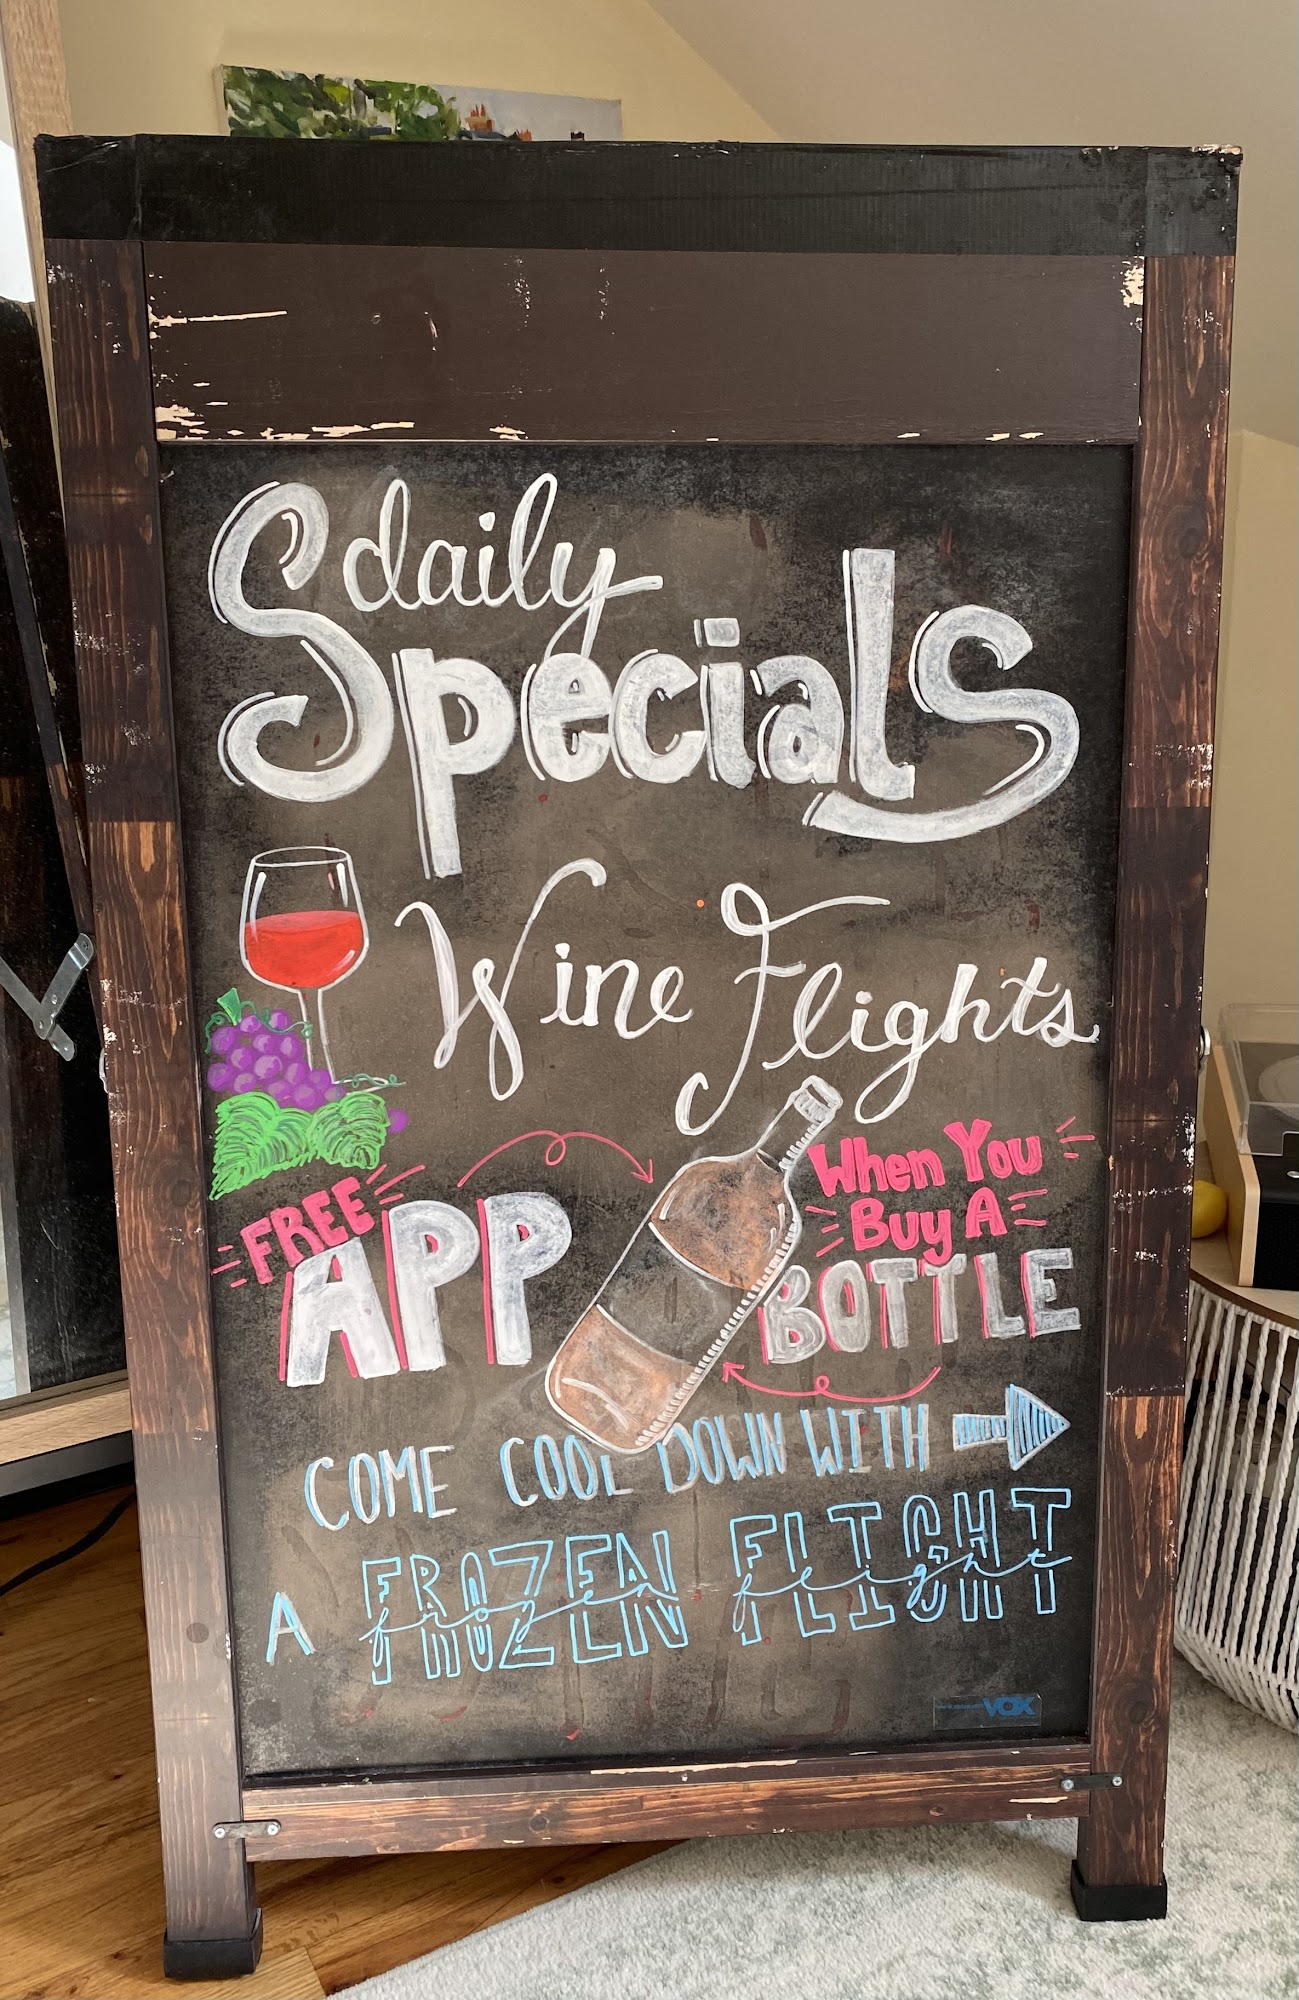 daily
Specials
Wine Flights
FREE
APP
When You
Buy A
BOTTLE
COME COOL DOWN WITH
A FROZEN FLIGHT
frozen flight
VOX